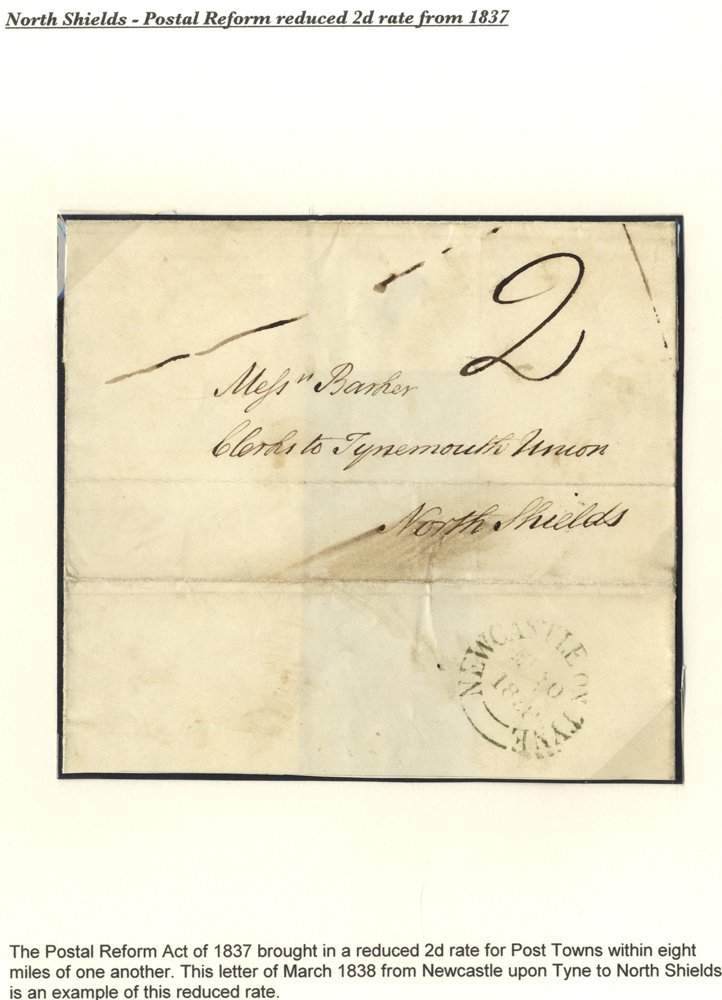 North Shields - Postal Reform reduced 2d rate from 1837
2
Messrs Barker
Clerks to Tynemouth Union
North Shields
NEWCASTLE ON TYNE
The Postal Reform Act of 1837 brought in a reduced 2d rate for Post Towns within eight
miles of one another. This letter of March 1838 from Newcastle upon Tyne to North Shields
is an example of this reduced rate.